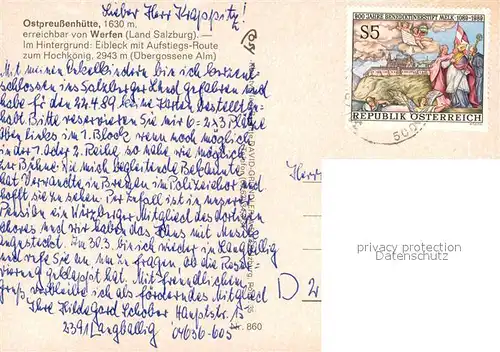 Lieber Herr Krappitz!
Ostpreußenhütte, 1630 m,
erreichbar von Werfen (Land Salzburg). —
Im Hintergrund: Eibleck mit Aufstiegs-Route
zum Hochkönig, 2943 m (Übergossene Alm)
Mit meinen Enkelkindern bin ich kurzent-
schlossen ins Salzburger Land gefahren und
habe für den 22.4.89 keine Karten bestellt ge-
habt. Bitte reservieren Sie mir 6 = 2x3 Plätze
oben links im 1. Block wenn noch möglich
in der 1. oder 2. Reihe, so nahe wie möglich
zur Bühne. Die mich begleitende Bekannte
hat Verwandte in Bremen im Polizeichor und
hofft sie zu sehen. Per Zufall ist in unserer
Pension ein Würzburger Mitglied des dortigen
Chores und wir haben das Haus mit Musik
angesteckt. Am 30.3. bin ich wieder in Langballig
und rufe Sie an, um zu fragen ob die Reser-
vierung geklappt hat. Mit freundlichem
Gruß, verbleibe ich als förderndes Mitglied
Ihre Hildegard Schober Hauptstr. 15
2391 Langballig 04636-605
Nr. 860
900 JAHRE BENEDIKTINERSTIFT MELK 1089-1989
S5
REPUBLIK ÖSTERREICH
Herr
D 2
privacy protection
Datenschutz